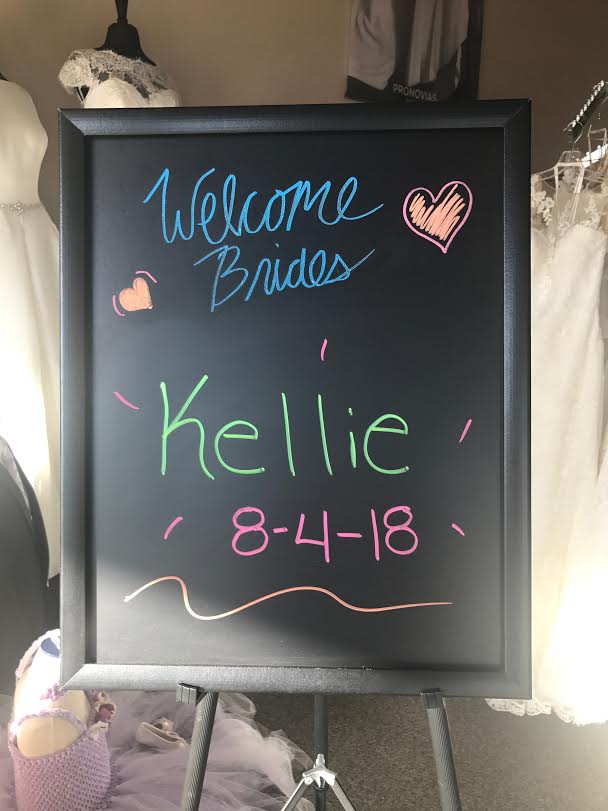 PRONOVIAS
Welcome
Brides
Kellie
8-4-18